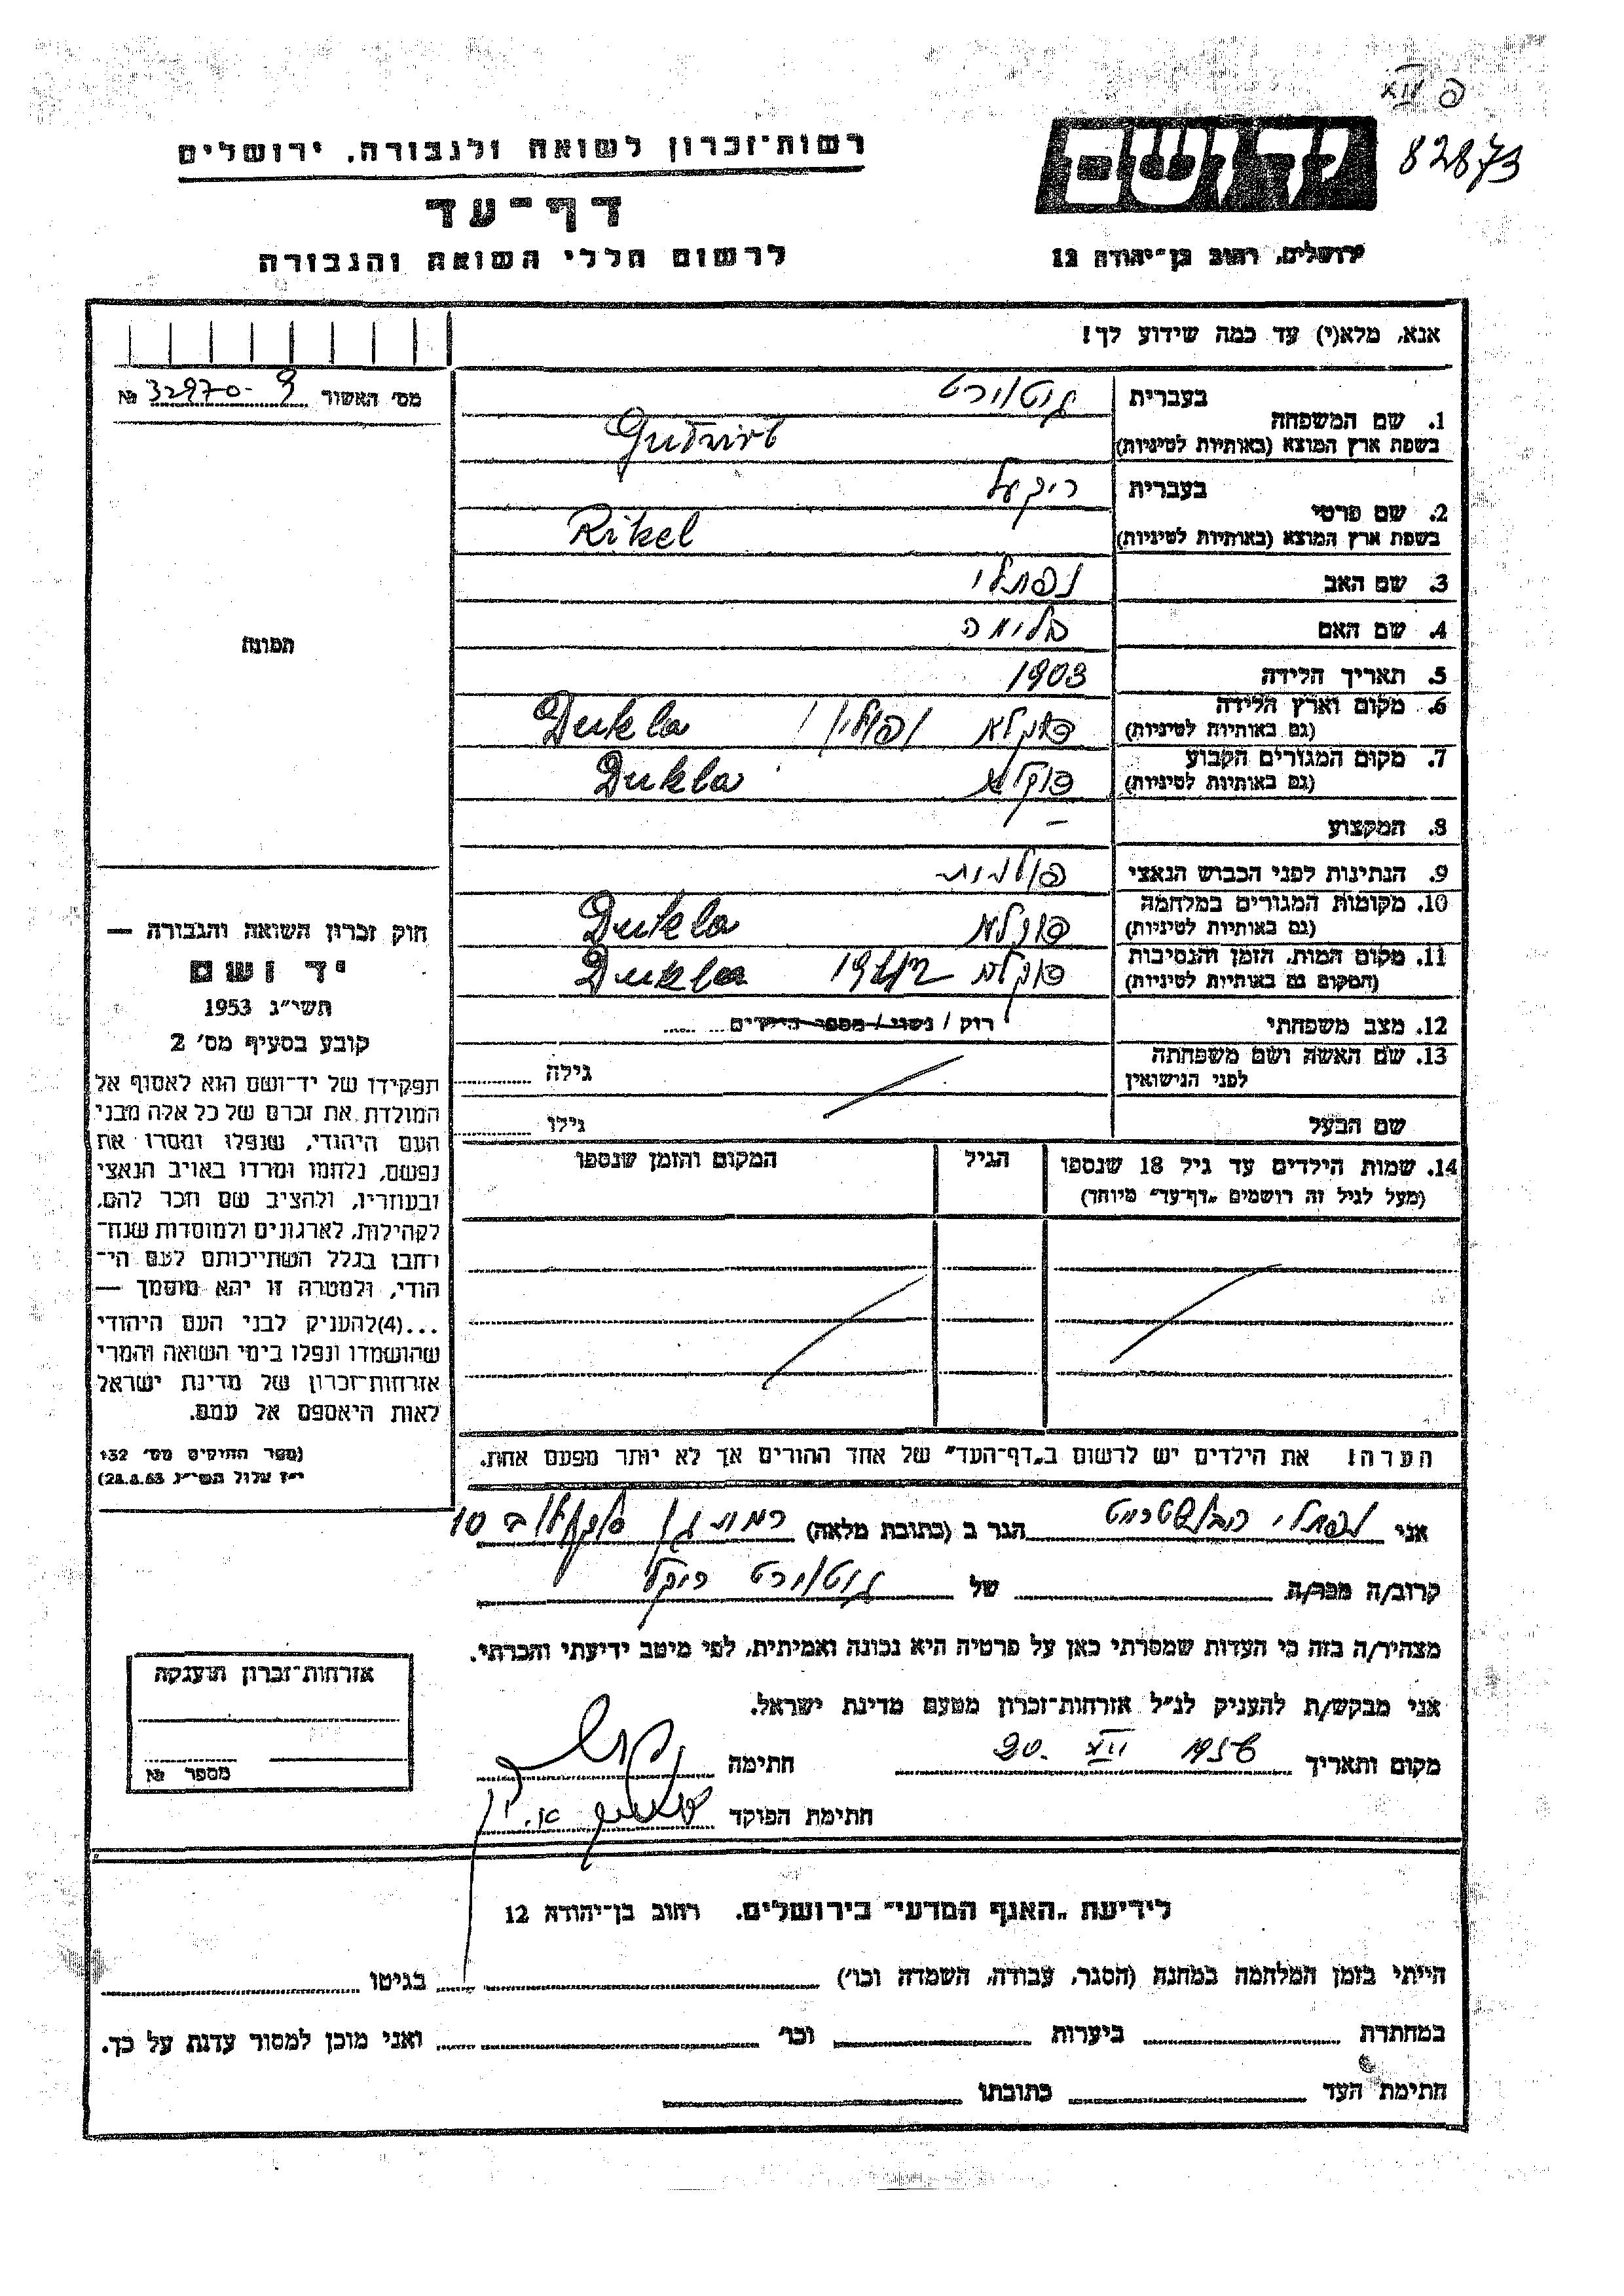 82873
רשות־זכרון לשואה ולגבורה, ירושלים
יד ושם
דף־עד
לרשום חללי השואה והגבורה
ירושלים, רחוב בן־יהודה 12
אנא, מלא(י) עד כמה שידוע לך!
מס׳ האשור 32970-9 №
1. שם המשפחה
בעברית גוטוירט
בשפת ארץ המוצא (באותיות לטיניות) Gutwirt
2. שם פרטי
בעברית ריקעל
בשפת ארץ המוצא (באותיות לטיניות) Rikel
3. שם האב נפתלי
4. שם האם
תמונה
5. תאריך הלידה 1903
6. מקום וארץ הלידה Dukla
(גם באותיות לטיניות)
7. מקום המגורים הקבוע Dukla
(גם באותיות לטיניות)
8. המקצוע –
9. הנתינות לפני הכבוש הנאצי פולנית
10. מקומות המגורים במלחמה Dukla
(גם באותיות לטיניות)
11. מקום המות, הזמן והנסיבות 1942 Dukla
(המקום גם באותיות לטיניות)
12. מצב משפחתי רוק / נשוי / מספר הילדים
13. שם האשה ושם משפחתה גילה
לפני הנישואין
שם הבעל גילו
14. שמות הילדים עד גיל 18 שנספו הגיל המקום והזמן שנספו
(מעל לגיל זה רושמים „דף־עד״ מיוחד)
הערה! את הילדים יש לרשום ב„דף־העד״ של אחד ההורים אך לא יותר מפעם אחת.
חוק זכרון השואה והגבורה —
יד ושם
תשי״ג 1953
קובע בסעיף מס׳ 2
תפקידו של יד־ושם הוא לאסוף אל
המולדת את זכרם של כל אלה מבני
העם היהודי, שנפלו ומסרו את
נפשם, נלחמו ומרדו באויב הנאצי
ובעוזריו, ולהציב שם וזכר להם,
לקהילות, לארגונים ולמוסדות שנח־
רחבו בגלל השתייכותם לעם הי־
הודי, ולמטרה זו יהא מוסמך —
...(4)להעניק לבני העם היהודי
שהושמדו ונפלו בימי השואה והמרי
אזרחות־זכרון של מדינת ישראל
לאות היאספם אל עמם.
(ספר החוקים מס׳ 132
י״ז אלול תשי״ג 28.8.53)
אני נפתלי הגר ב (כתובת מלאה) רמת גן 10
קרוב/ה מכר/ה של גוטוירט ריקל
מצהיר/ה בזה כי העדות שמסרתי כאן על פרטיה היא נכונה ואמיתית, לפי מיטב ידיעתי והכרתי.
אני מבקש/ת להעניק לנ״ל אזרחות־זכרון מטעם מדינת ישראל.
מקום ותאריך 1956 XII 20. חתימה
חתימת הפוקד
אזרחות־זכרון הוענקה
מספר №
לידיעת „האגף המדעי״ בירושלים, רחוב בן־יהודה 12
הייתי בזמן המלחמה במחנה (הסגר, עבודה, השמדה וכו׳) בגיטו
במחתרת ביערות וכו׳ ואני מוכן למסור עדות על כך.
חתימת העד כתובתו